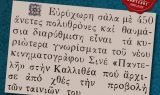 Εὐρύχωρη σάλα μὲ 450
ἄνετες πολυθρόνες καὶ θαυμά-
σια διαρύθμιση εἶναι τὰ κυ-
ριώτερα γνωρίσματα τοῦ νέου
κινηματογράφου Σινὲ «Παντε-
λὴ» στὴν Καλλιθέα ποὺ ἄρχι-
σε ἀπὸ χθὲς τὴν προβολὴ
τῶν ταινιῶν του